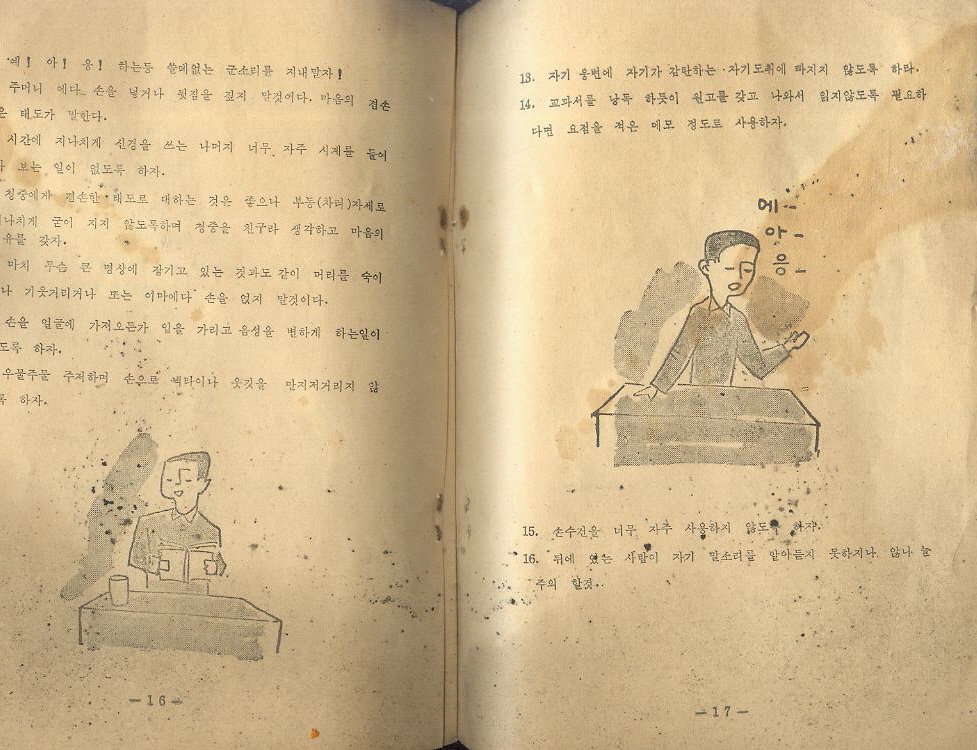 예! 아! 응! 하는등 쓸데없는 군소리를 지내말자!
주머니 에다 손을 넣거나 뒷짐을 짚지 말것이다. 마음의 겸손
은 태도가 말한다.
시간에 지나치게 신경을 쓰는 나머지 너무 자주 시계를 들어
다 보는 일이 없도록 하자.
청중에게 겸손한 태도로 대하는 것은 좋으나 부동(차려)자세로
지나치게 굳이 지지 않도록하며 청중을 친구라 생각하고 마음의
유를 갖자.
마치 무슨 큰 명상에 잠기고 있는 것과도 같이 머리를 숙이
나 기웃거리거나 또는 이마에다 손을 얹지 말것이다.
손을 얼굴에 가져오든가 입을 가리고 음성을 변하게 하는일이
도록 하자.
우물주물 주저하며 손으로 넥타이나 옷깃을 만지저거리지 않
록 하자.
—16—
13. 자기 웅변에 자기가 감탄하는 자기도취에 빠지지 않도록 하라.
14. 교과서를 낭독 하듯이 원고를 갖고 나와서 읽지않도록 필요하
다면 요점을 적은 메모 정도로 사용하자.
에-
아-
응-
15. 손수건을 너무 자주 사용하지 않도록 하자.
16. 뒤에 있는 사람이 자기 말소리를 알아듣지 못하지나 않나 늘
주의 할것.
—17—